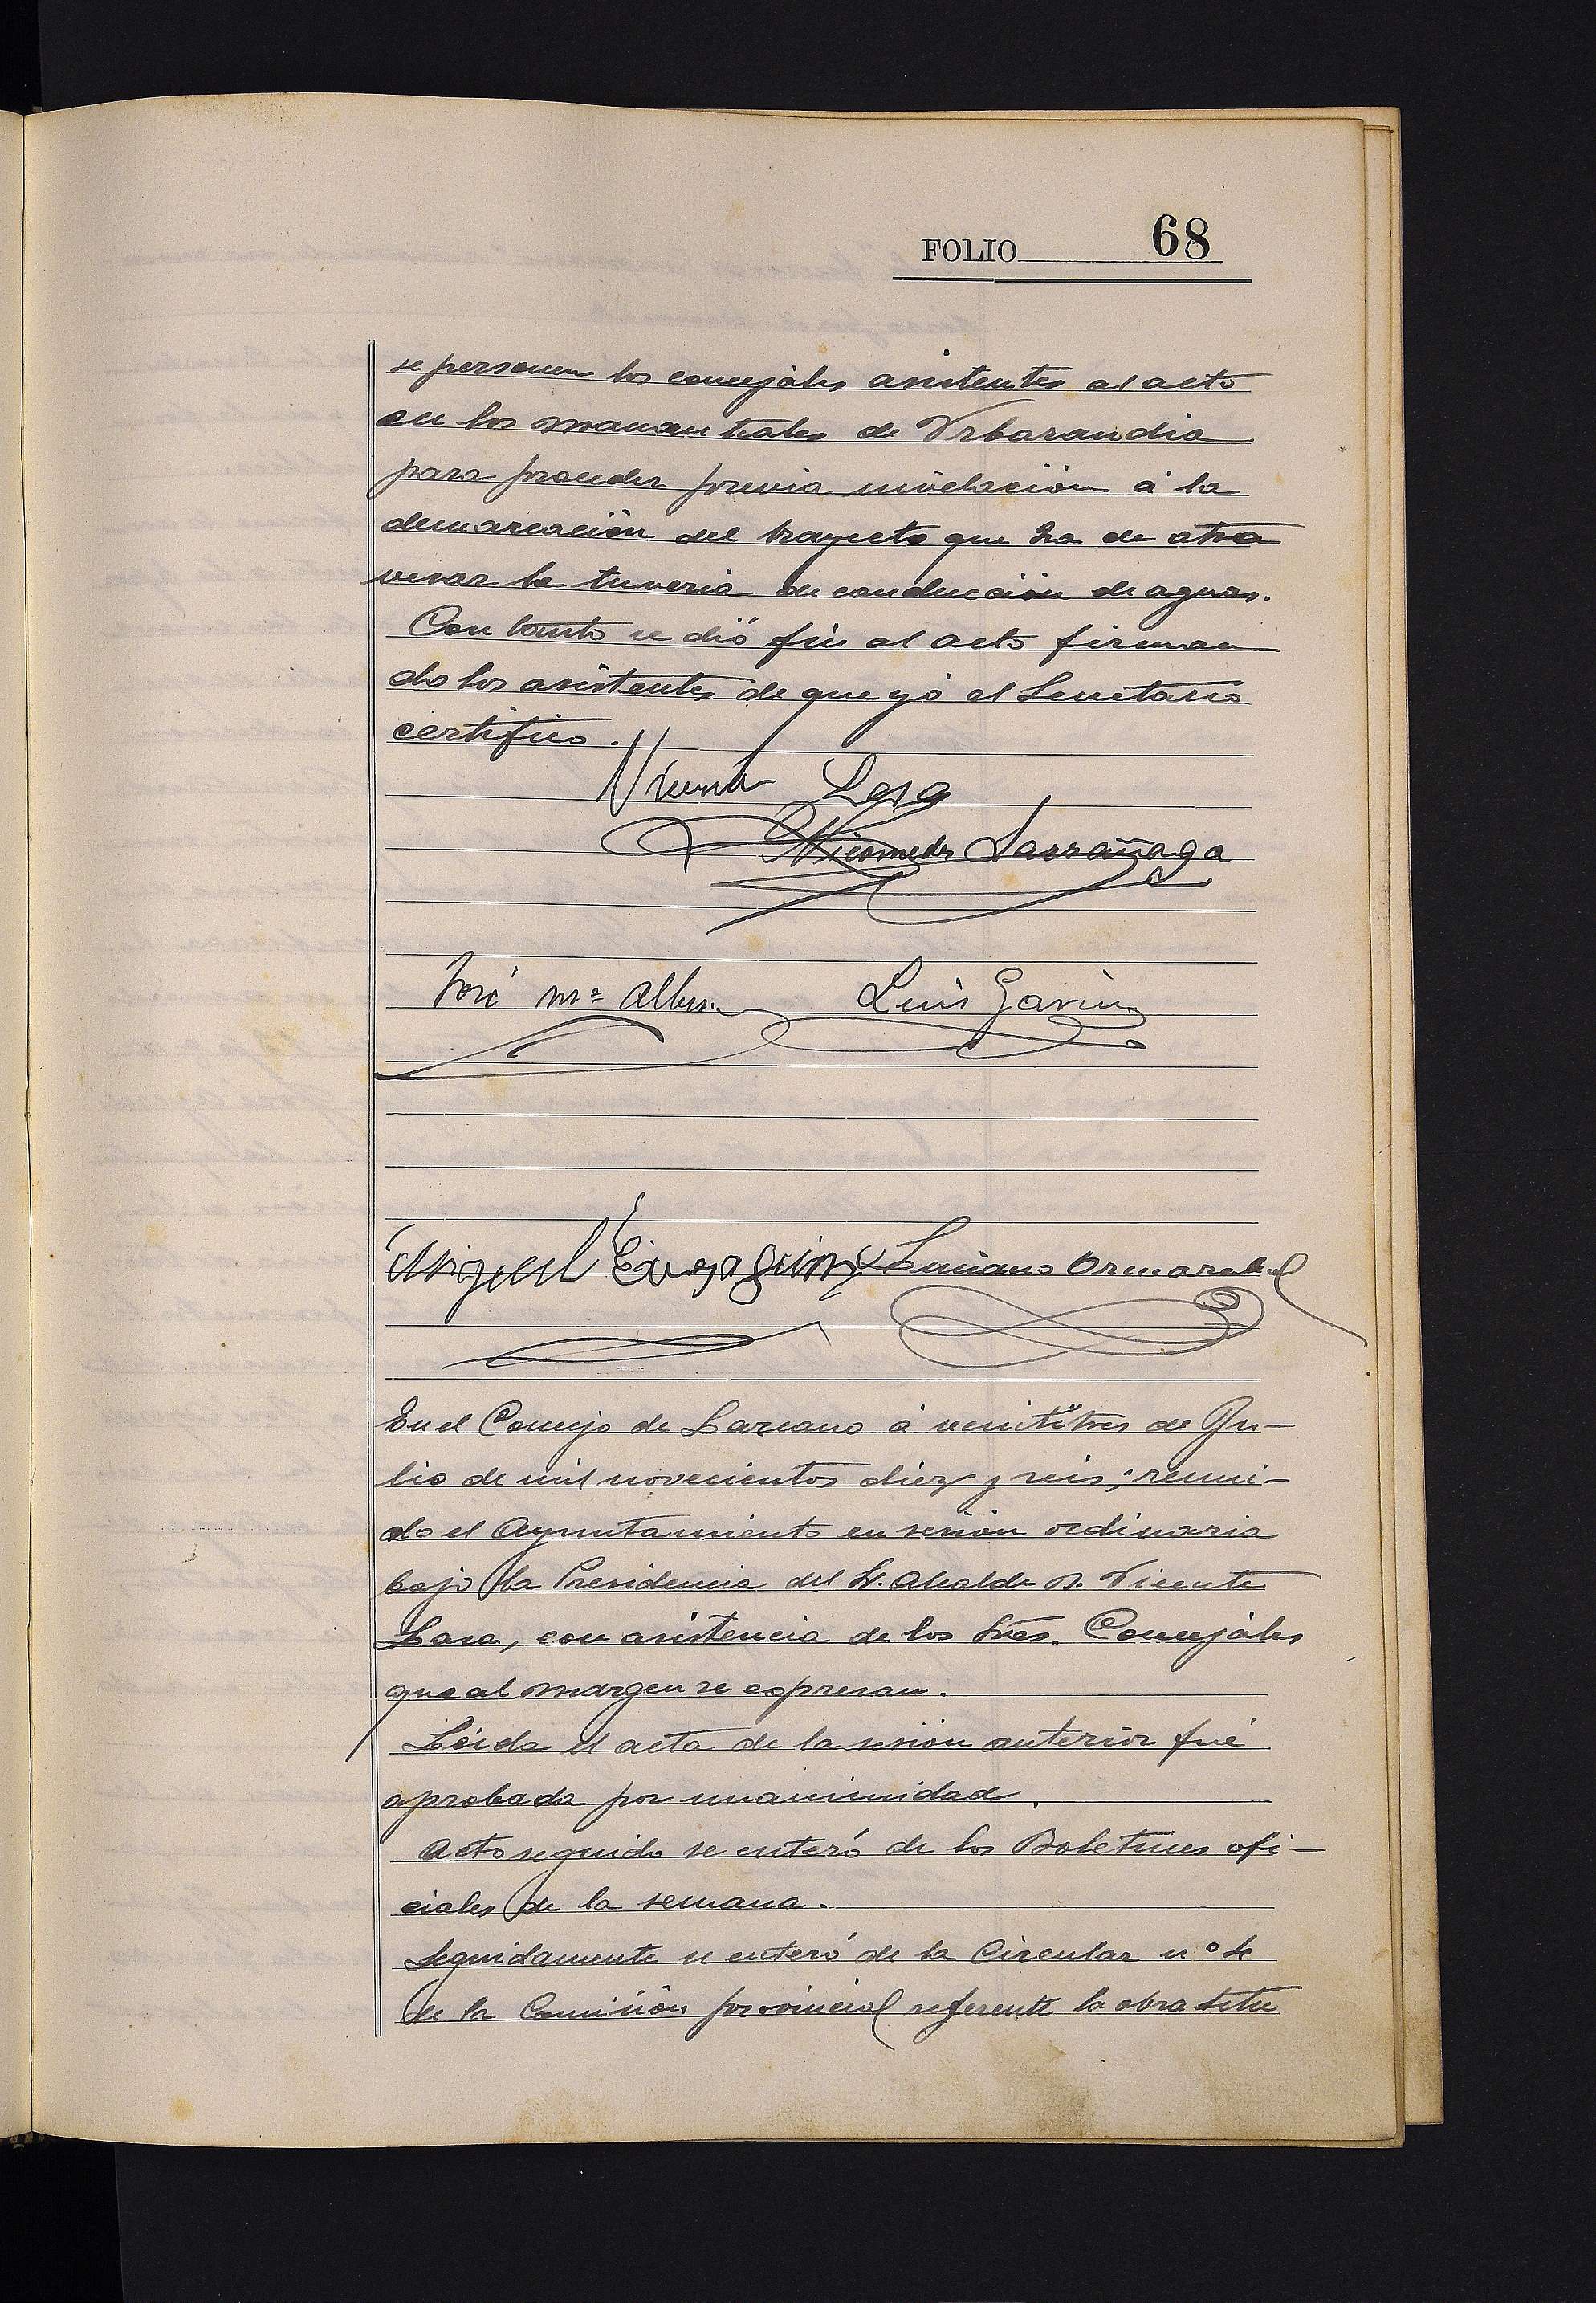 FOLIO 68
se personen los concejáles asistentes al acto
en los manantiales de Urbarandia
para proceder previa nivelación á la
demarcación del trayecto que ha de atra
vesar la tuveria de conducción de aguas.
Con tanto se dió fin al acto firman
do los asistentes de que yó el Secretario
certifico.
Vicente Lasa
Nicomedes Larrañaga
José Mª Luis Garin
Miguel Luciano Ormazabal
En el Concejo de Lazcano á veintitres de Ju-
lio de mil novecientos diez y seis; reuni-
do el Ayuntamiento en sesión ordinaria
bajo la Presidencia del Sr. Alcalde D. Vicente
Lasa, con asistencia de los Sres. Concejáles
que al margen se expresan.
Leida el acta de la sesión anterior fué
aprobada por unanimidad.
Acto seguido se enteró de los Boletines ofi-
ciales de la semana.
Seguidamente se enteró de la Circular nº
de la Comisión provincial referente la obra titu